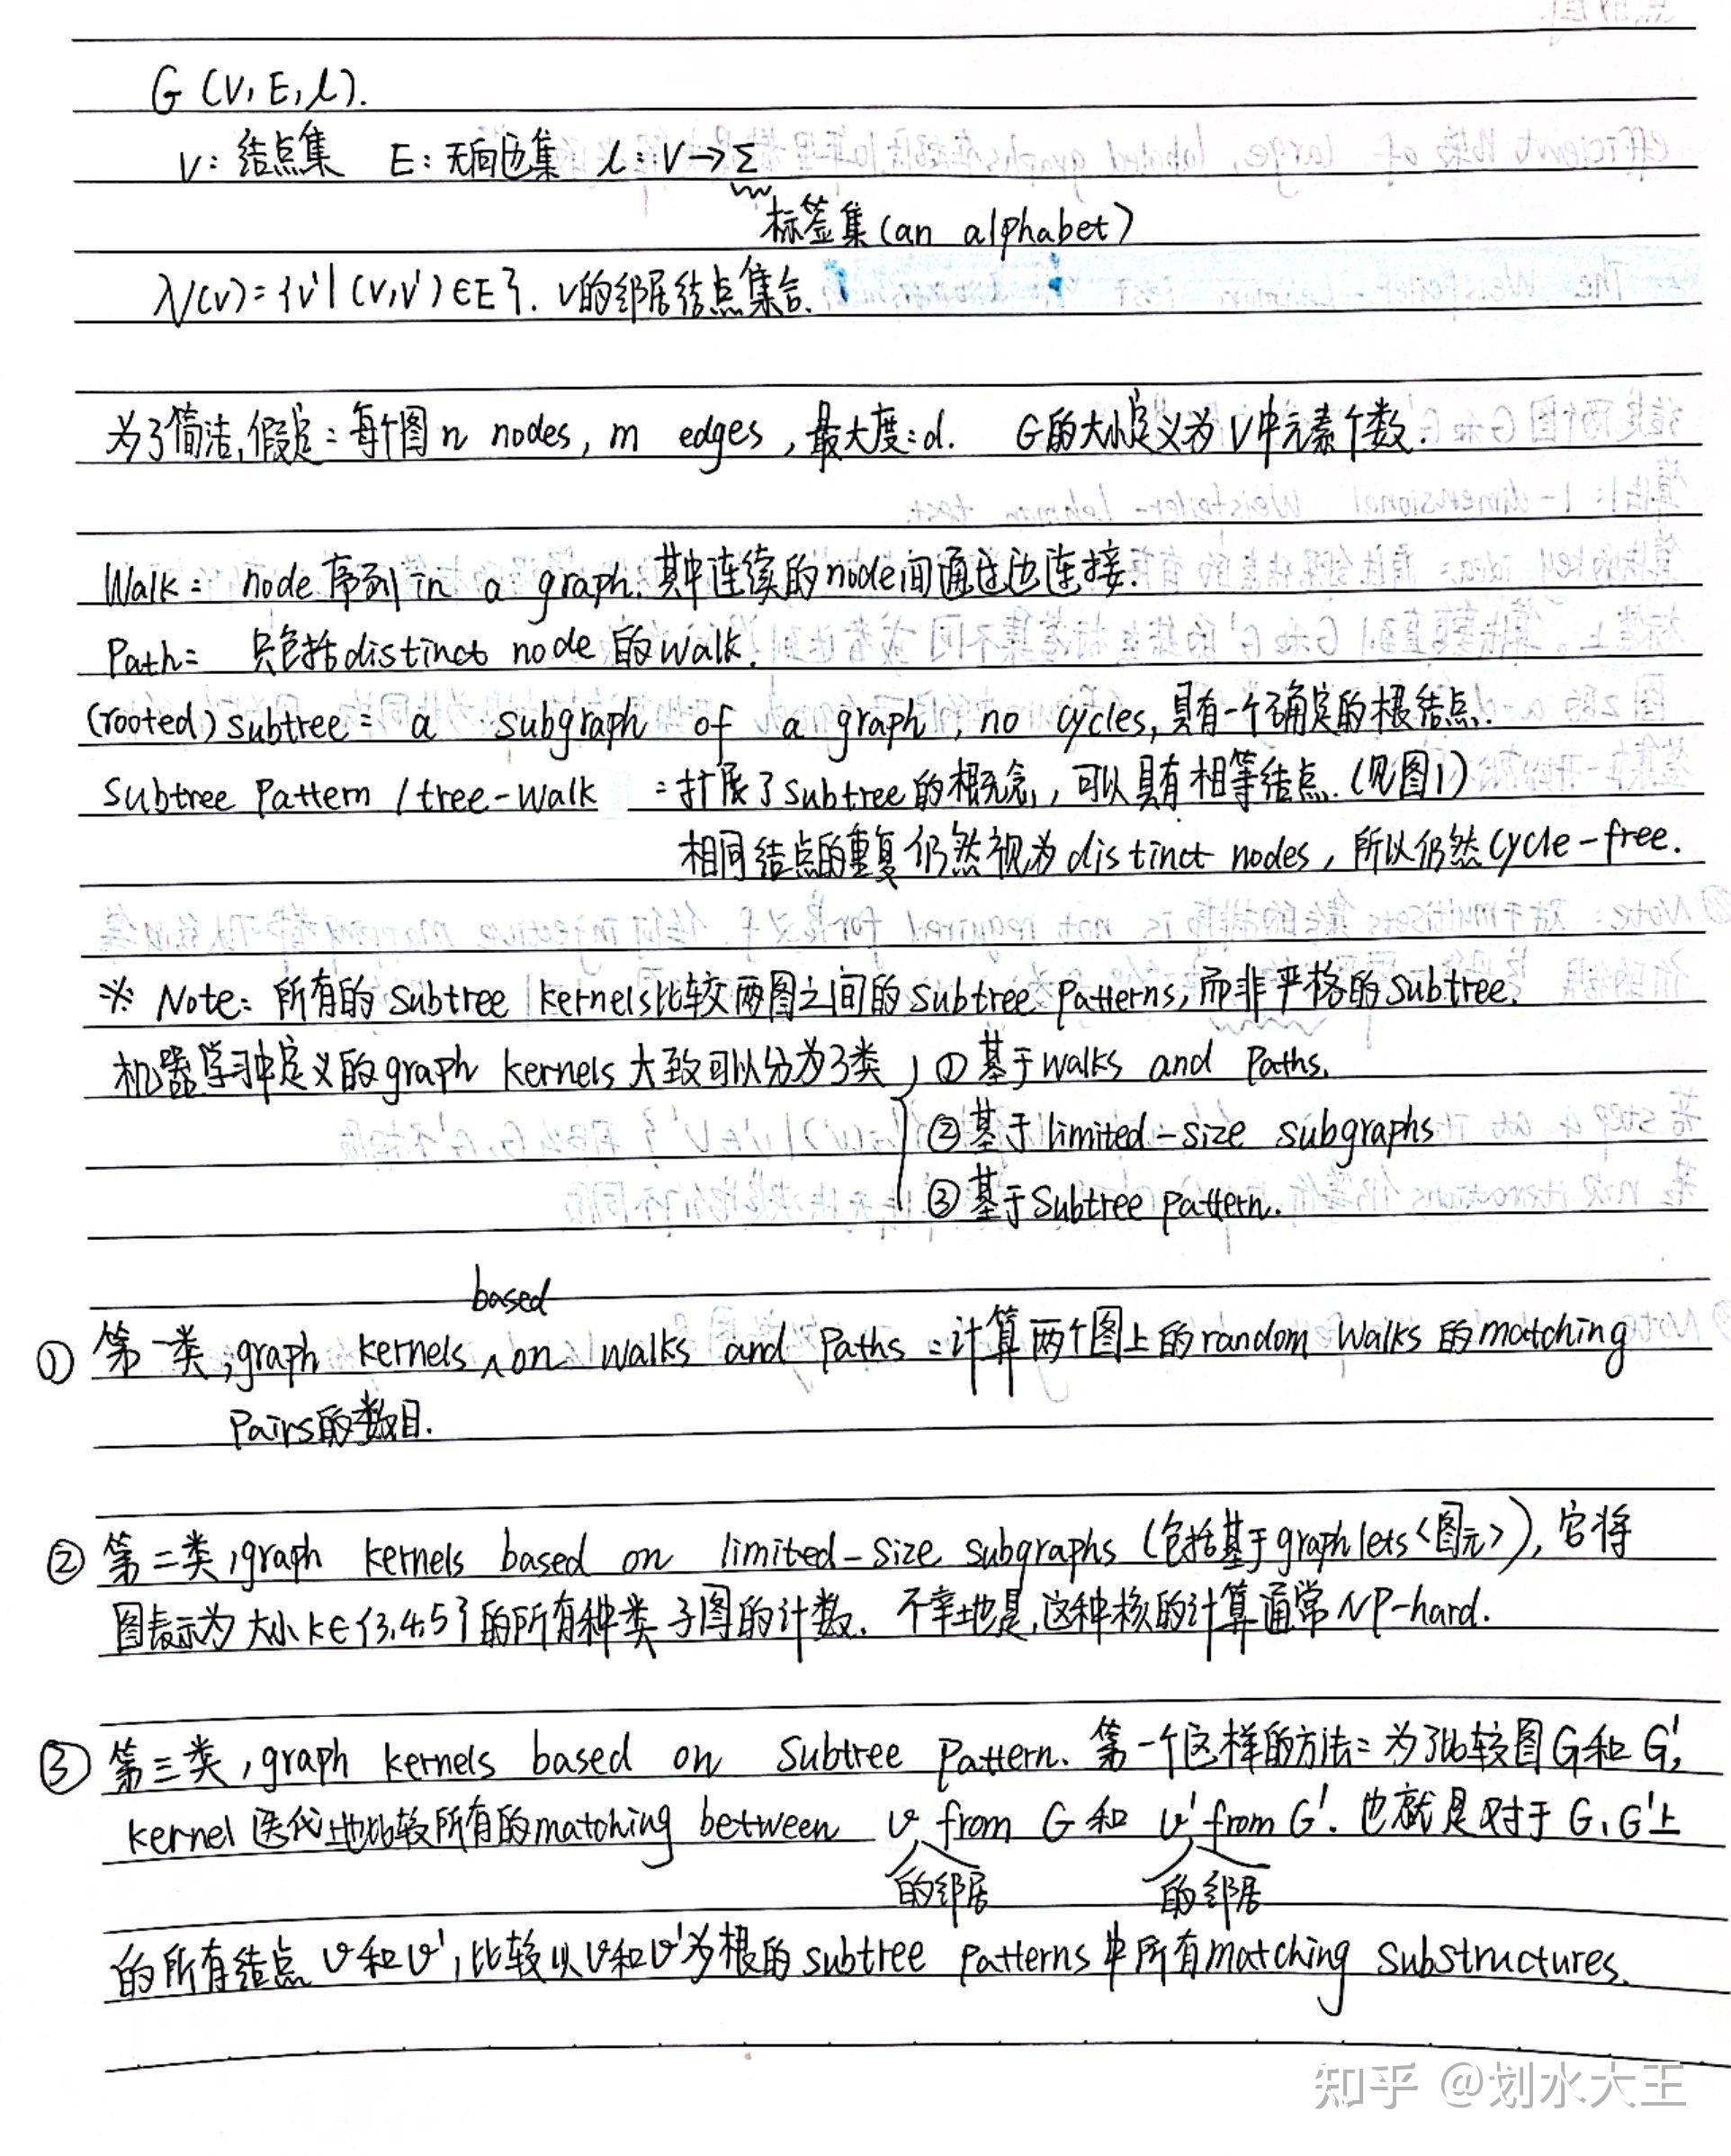 G (V, E, l).
V: 结点集 E: 无向边集 l: V→Σ
标签集(an alphabet)
N(v)={v'|(v,v')∈E}. v的邻居结点集合.
为了简洁,假定: 每个图 n nodes, m edges, 最大度:d. G的大小定义为 V中元素个数.
Walk: node 序列 in a graph. 其中连续的node间通过边连接.
Path: 只包括distinct node 的walk.
(rooted) subtree: a subgraph of a graph, no cycles, 具有一个确定的根结点.
Subtree Pattern / tree-walk :扩展了subtree的概念, 可以具有相等结点. (见图1)
相同结点的重复仍然视为distinct nodes, 所以仍然cycle-free.
※ Note: 所有的subtree kernels比较两图之间的subtree patterns, 而非严格的subtree.
机器学习中定义的graph kernels大致可以分为3类 ① 基于walks and Paths.
② 基于limited-size subgraphs
③ 基于subtree pattern.
based
① 第一类, graph kernels ∧ on walks and Paths :计算两个图上的random walks的matching
Pairs的数目.
② 第二类, graph kernels based on limited-size subgraphs (包括基于graphlets<图元>), 它将
图表示为大小k∈{3,4,5}的所有种类子图的计数. 不幸地是,这种核的计算通常NP-hard.
③ 第三类, graph kernels based on Subtree Pattern. 第一个这样的方法: 为了比较图G和G',
kernel 迭代地比较所有的matching between v from G 和 v' from G'. 也就是对于G, G'上
的邻居 的邻居
的所有结点 v和v', 比较以v和v'为根的subtree patterns中所有matching substructures.
知乎 @划水大王